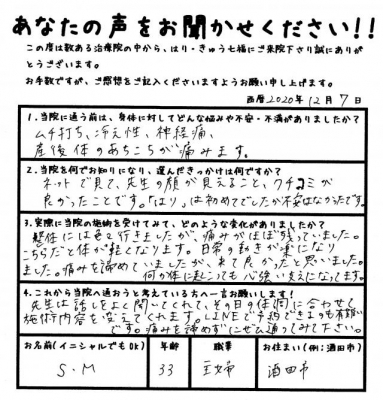 あなたの声をお聞かせください!!
この度は数ある治療院の中から、はり・きゅう七福にご来院下さり誠にありが
とうございます。
お手数ですが、ご感想をご記入くださいますようお願い申し上げます。
西暦2020年12月7日
1.当院に通う前は、身体に対してどんな悩みや不安・不満がありましたか?
ムチ打ち、冷え性、神経痛、
産後体のあちこちが痛みます。
2.当院を何でお知りになり、選んだきっかけは何ですか?
ネットで見て、先生の顔が見えること、クチコミが
良かったことです。「はり」は初めてでしたが不安はなかったです。
3.実際に当院の施術を受けてみて、どのような変化がありましたか?
整体には色々行きましたが、痛みがほぼ残っていました。
こちらだと体が軽くなります。日常の動きが楽になり
ました。痛みを諦めていましたが、来て良かったと思いました。
何か体に起こっても心強い支えになってます。
4.これから当院へ通おうと考えている方へ一言お願いします!
先生は話しをよく聞いてくれて、その日の体調に合わせて
施術内容を変えてくれます。LINEで予約できるのも有難い
です。痛みを諦めずにぜひ通ってみて下さい。
お名前(イニシャルでもOK) 年齢 職業 お住まい(例:酒田市)
S.M 33 主婦 酒田市